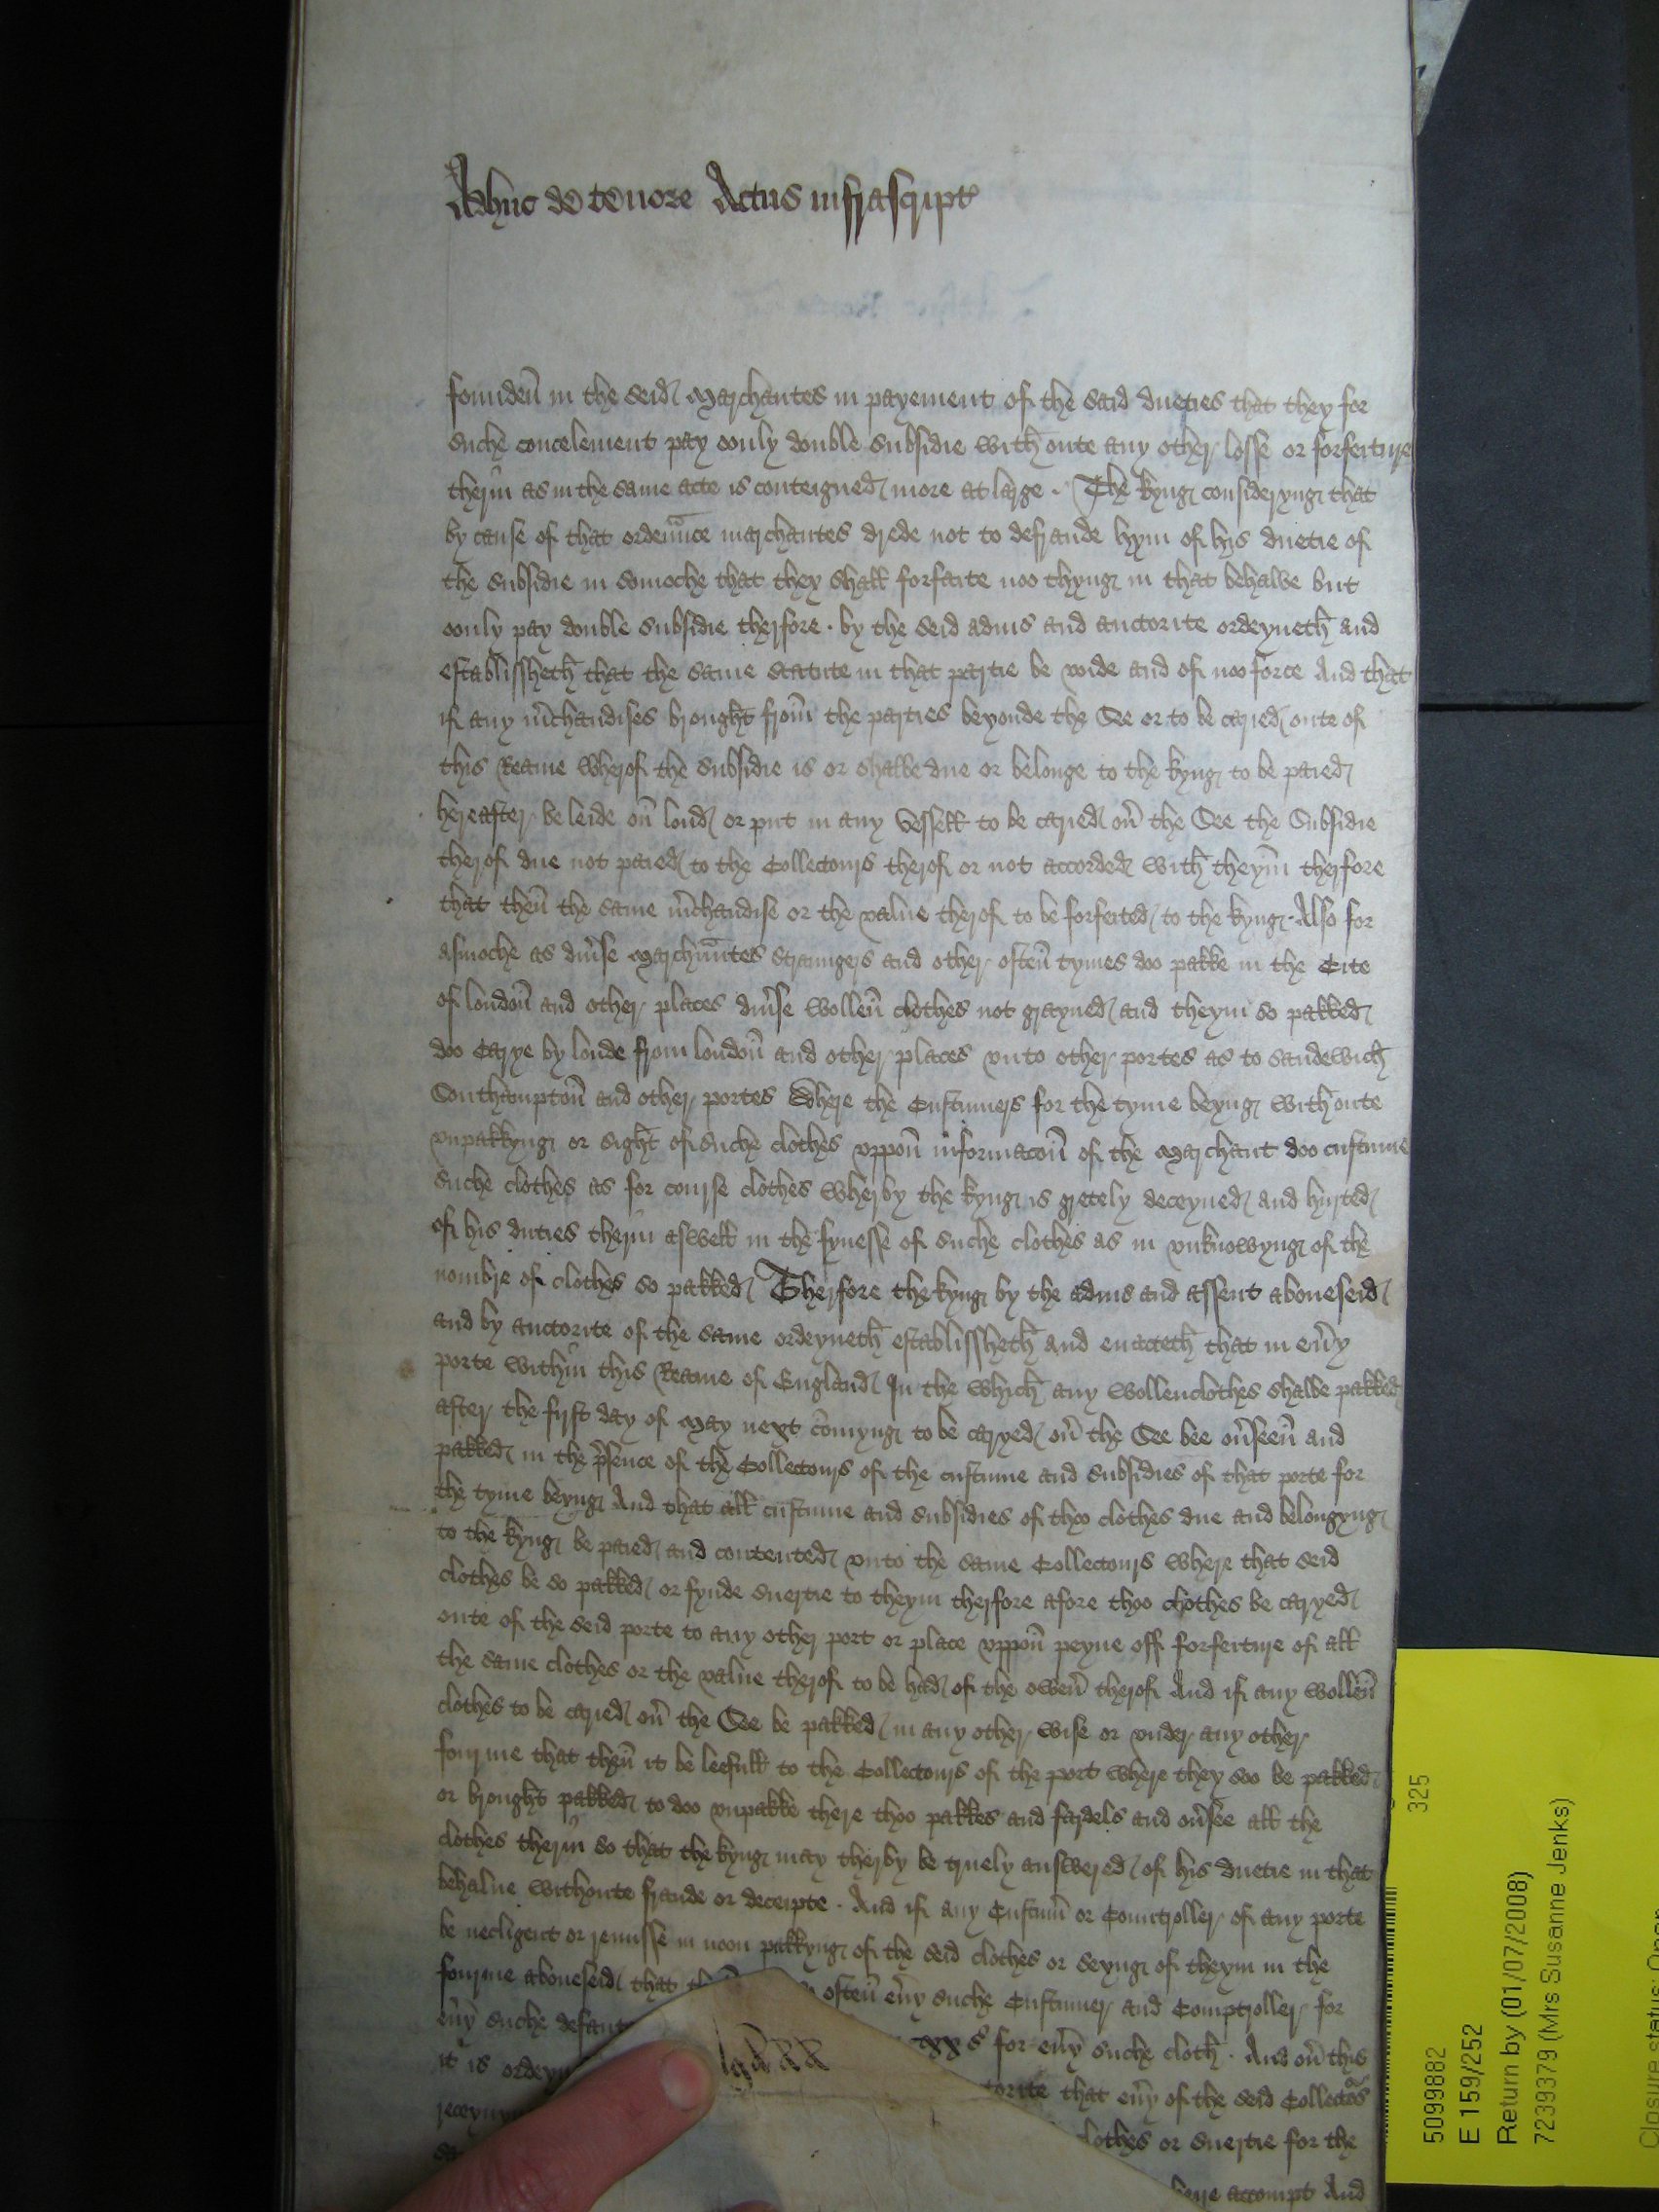 Adhuc de tenore Actus infrascript
founden in the seid Marchantes in payement of the said dueties that they for
suche concelement pay oonly double subsidie with oute any other losse or forfeture
therin as in the same acte is conteigned more at large . The kyng consideryng that
by cause of that ordenance marchantes drede not to defraude hym of his duetie of
the subsidie in somoche that they shall forfaite noo thyng in that behalve but
oonly pay double subsidie therfore . by the seid advis and auctorite ordeyneth and
establissheth that the same statute in that partie be voide and of noo force And that
if any mchandises brought from the parties beyonde the See or to be caried oute of
this Reame wherof the subsidie is or shalbe due or belonge to the kyng to be paied
hereafter be leide on lond or put in any vessell to be caried ov the See the Subsidie
therof due not paied to the Collectours therof or not accorded with theym therfore
that then the same mchandise or the value therof to be forfeited to the kyng . Also for
asmoche as divse Marchantes straungers and other often tymes doo pakke in the Cite
of london and other places divse wollen clothes not grayned and theym so pakked
doo Carye by londe from london and other places vnto other portes as to sandewich
Southampton and other portes Where the Custumers for the tyme beyng with oute
vnpakkyng or sight of suche clothes vppon informacon of the Marchant doo custume
suche clothes as for course clothes wherby the kyng is gretely deceyued and hurted
of his duties therin aswell in the fynesse of suche clothes as in vnknowyng of the
nombre of clothes so pakked Therfore the kyng by the advis and assent aboueseid
and by auctorite of the same ordeyneth establissheth and enacteth that in evy
porte within this Reame of England In the which any wollenclothes shalbe pakked
after the first day of May next comyng to be caryed ov the See bee ovseen and
pakked in the psence of the Collectours of the custume and subsidies of that porte for
the tyme beyng And that all custume and subsidies of thoo clothes due and belongyng
to the kyng be paied and contented vnto the same Collectours where that seid
clothes be so pakked or fynde suertie to theym therfore afore thoo clothes be caryed
oute of the seid porte to any other port or place vppon peyne off forfeture of all
the same clothes or the value therof to be had of the owen therof And if any wollen
clothes to be caried ov the See be pakked in any other wise or vnder any other
fourme that then it be leefull to the Collectours of the port where they soo be pakked
or brought pakked to doo vnpakke there thoo pakkes and fardels and ovsee all the
clothes therin so that the kyng may therby be truely answered of his duetie in that
behalue withoute fraude or deceipte . And if any Custum or Countroller of any porte
be necligent or remisse in noon pakkyng of the seid clothes or seyng of theym in the
fourme aboueseid that often evy suche Custumer and Comptroller for
evy suche defaut xx s for evy suche cloth . And ov this
it is ordeyn torite that evy of the seid Collectos
clothes or suertie for the
accompt And
5099882
325
E 159/252
Return by (01/07/2008)
7239379 (Mrs Susanne Jenks)
Closure status: Open